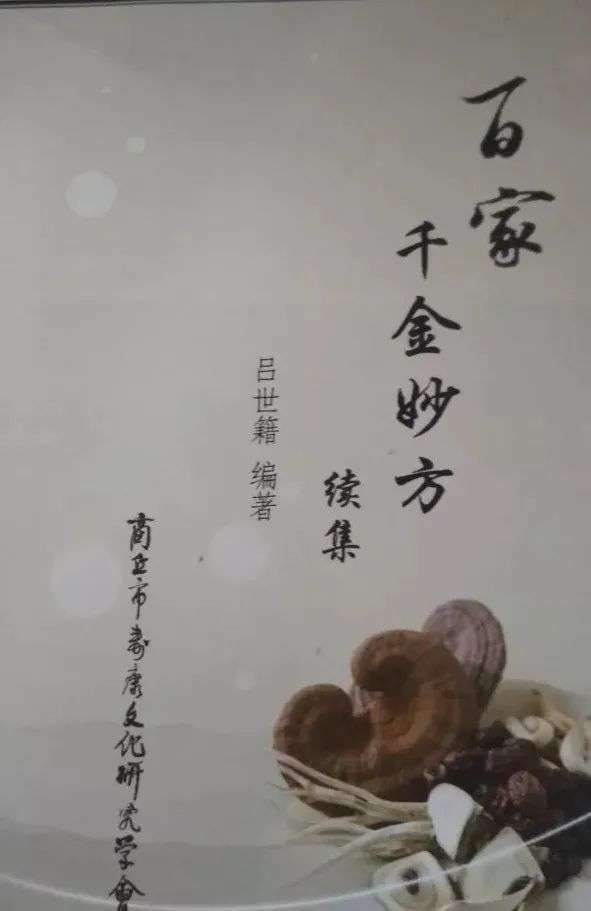 百家
千金妙方
续集
吕世籍 编著
商丘市寿康文化研究学会